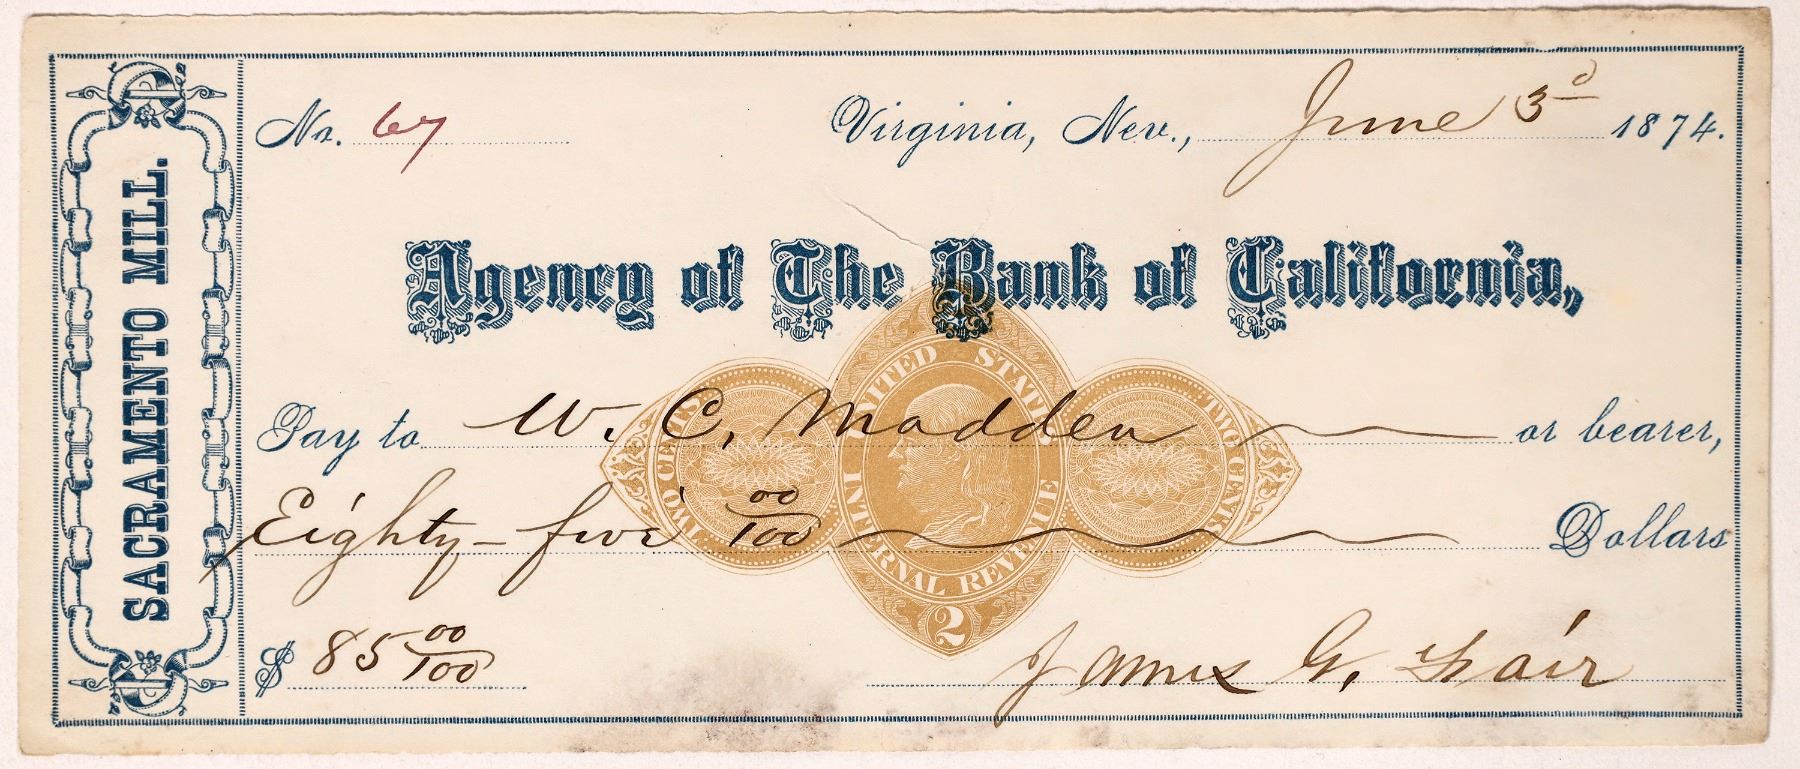 SACRAMENTO MILL.
No. 67
Virginia, Nev., June 3d 1874.
Agency of The Bank of California,
Pay to W. C. Madden or bearer,
Eighty-five 00/100 Dollars
$ 85 00/100
James G. Fair
UNITED STATES
INTERNAL REVENUE
TWO CENTS
TWO CENTS
2